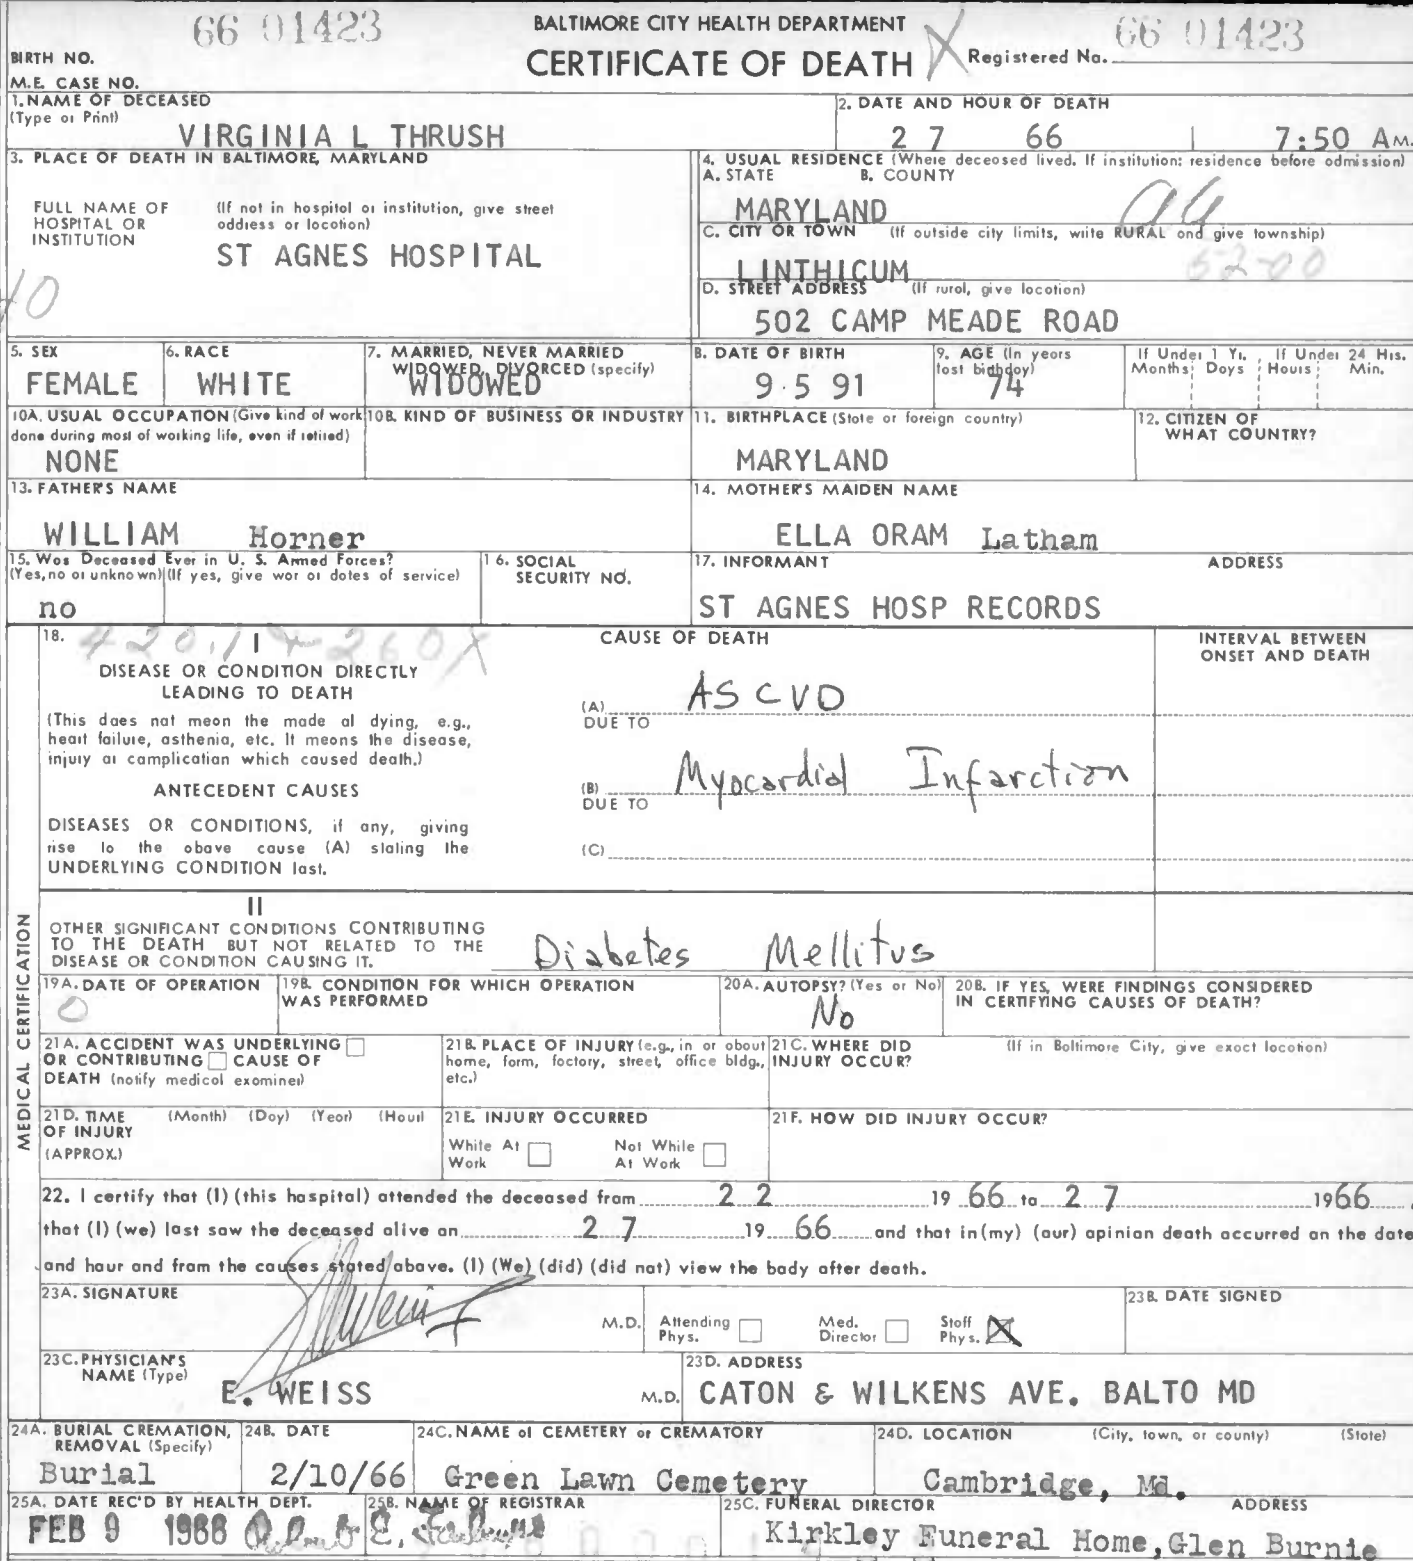 66 01423 BALTIMORE CITY HEALTH DEPARTMENT 66 01423
BIRTH NO. CERTIFICATE OF DEATH X Registered No.
M.E. CASE NO.
1. NAME OF DECEASED 2. DATE AND HOUR OF DEATH
(Type or Print) VIRGINIA L THRUSH 2 7 66 7:50 A M.
3. PLACE OF DEATH IN BALTIMORE, MARYLAND
4. USUAL RESIDENCE (Where deceased lived. If institution: residence before admission)
A. STATE B. COUNTY
FULL NAME OF HOSPITAL OR INSTITUTION
(If not in hospital or institution, give street address or location)
ST AGNES HOSPITAL
10
MARYLAND
C. CITY OR TOWN (If outside city limits, write RURAL and give township)
LINTHICUM 52-00
D. STREET ADDRESS (If rural, give location)
502 CAMP MEADE ROAD
5. SEX FEMALE
6. RACE WHITE
7. MARRIED, NEVER MARRIED WIDOWED, DIVORCED (specify) WIDOWED
8. DATE OF BIRTH 9 5 91
9. AGE (In years last birthday) 74
If Under 1 Yr. Months Days
If Under 24 Hrs. Hours Min.
10A. USUAL OCCUPATION (Give kind of work done during most of working life, even if retired) NONE
10B. KIND OF BUSINESS OR INDUSTRY
11. BIRTHPLACE (State or foreign country) MARYLAND
12. CITIZEN OF WHAT COUNTRY?
13. FATHER'S NAME WILLIAM Horner
14. MOTHER'S MAIDEN NAME ELLA ORAM Latham
15. Was Deceased Ever in U. S. Armed Forces?
(Yes, no or unknown) (If yes, give war or dates of service)
no
16. SOCIAL SECURITY NO.
17. INFORMANT ADDRESS
ST AGNES HOSP RECORDS
MEDICAL CERTIFICATION
18. 420.1 + 260X
I CAUSE OF DEATH INTERVAL BETWEEN ONSET AND DEATH
DISEASE OR CONDITION DIRECTLY LEADING TO DEATH
(This does not mean the mode of dying, e.g., heart failure, asthenia, etc. It means the disease, injury or complication which caused death.)
(A) ASCVD
DUE TO
ANTECEDENT CAUSES
(B) Myocardial Infarction
DUE TO
DISEASES OR CONDITIONS, if any, giving rise to the above cause (A) stating the UNDERLYING CONDITION last.
(C)
II
OTHER SIGNIFICANT CONDITIONS CONTRIBUTING TO THE DEATH BUT NOT RELATED TO THE DISEASE OR CONDITION CAUSING IT.
Diabetes Mellitus
19A. DATE OF OPERATION 0
19B. CONDITION FOR WHICH OPERATION WAS PERFORMED
20A. AUTOPSY? (Yes or No) No
20B. IF YES, WERE FINDINGS CONSIDERED IN CERTIFYING CAUSES OF DEATH?
21A. ACCIDENT WAS UNDERLYING OR CONTRIBUTING CAUSE OF DEATH (notify medical examiner)
21B. PLACE OF INJURY (e.g., in or about home, farm, factory, street, office bldg., etc.)
21C. WHERE DID INJURY OCCUR? (If in Baltimore City, give exact location)
21D. TIME OF INJURY (APPROX.) (Month) (Day) (Year) (Hour)
21E. INJURY OCCURRED
While At Work Not While At Work
21F. HOW DID INJURY OCCUR?
22. I certify that (I) (this hospital) attended the deceased from 2 2 19 66 to 2 7 1966
that (I) (we) last saw the deceased alive on 2 7 19 66 and that in (my) (our) opinion death occurred on the date
and hour and from the causes stated above. (I) (We) (did) (did not) view the body after death.
23A. SIGNATURE M.D. Attending Phys. Med. Director Staff Phys. X
23B. DATE SIGNED
23C. PHYSICIAN'S NAME (Type) E. WEISS M.D.
23D. ADDRESS CATON & WILKENS AVE. BALTO MD
24A. BURIAL CREMATION, REMOVAL (Specify) Burial
24B. DATE 2/10/66
24C. NAME of CEMETERY or CREMATORY Green Lawn Cemetery
24D. LOCATION (City, town, or county) (State) Cambridge, Md.
25A. DATE REC'D BY HEALTH DEPT. FEB 9 1966
25B. NAME OF REGISTRAR
25C. FUNERAL DIRECTOR ADDRESS
Kirkley Funeral Home, Glen Burnie